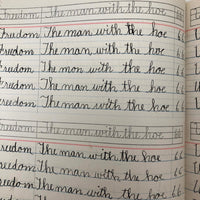 Freedom The man with the hoe 66
Freedom The man with the hoe 66
Freedom The man with the hoe 66
Freedom The mon with the hoe 66
Freedom The man with the hoe 66
Freedom The man with the hoe 66
Freedom The man with the hoe 66
Freedom The man with the hoe 66
Freedom The man with the hoe 66
Freedom The man with the hoe 66